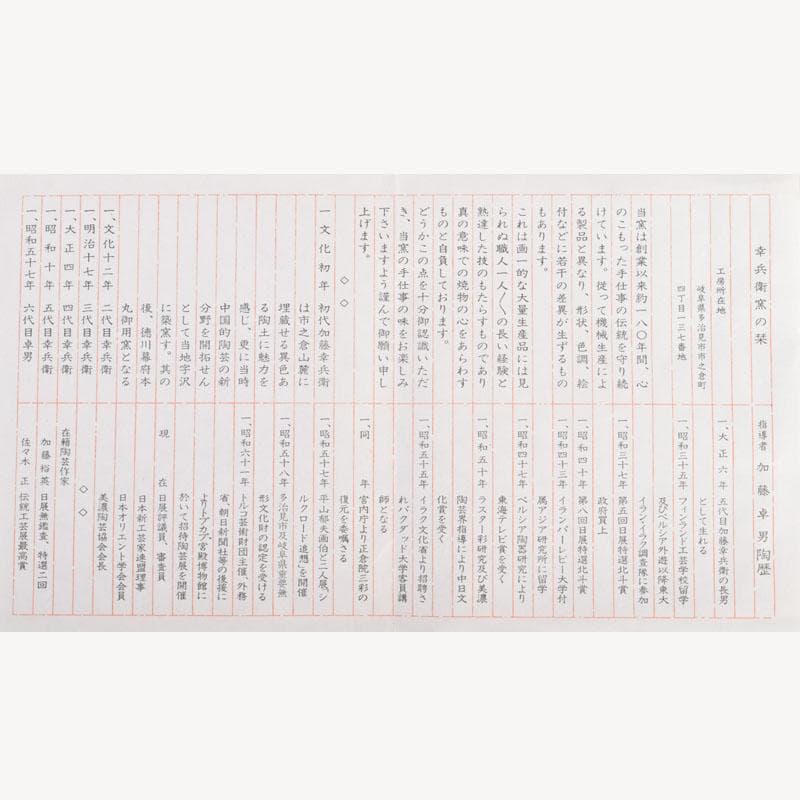 幸兵衛窯の栞
工房所在地
岐阜県多治見市市之倉町
四丁目一三七番地
当窯は創業以来約一八〇年間、心
のこもった手仕事の伝統を守り続
けています。従って機械生産によ
る製品と異なり、形状、色調、絵
付などに若干の差異が生ずるもの
もあります。
これは画一的な大量生産品には見
られぬ職人一人〳〵の長い経験と
熟達した技のもたらすものであり
真の意味での焼物の心をあらわす
ものと自負しております。
どうかこの点を十分御認識いただ
き、当窯の手仕事の味をお楽しみ
下さいますよう謹んで御願い申し
上げます。
◇◇
一文化初年 初代加藤幸兵衛
は市之倉山麓に
埋蔵せる異色あ
る陶土に魅力を
感じ、更に当時
中国的陶芸の新
分野を開拓せん
として当地字沢
に築窯す。其の
後、徳川幕府本
丸御用窯となる
一、文化十二年 二代目幸兵衛
一、明治十七年 三代目幸兵衛
一、大正四年 四代目幸兵衛
一、昭和十年 五代目幸兵衛
一、昭和五十七年 六代目卓男
指導者 加藤卓男陶歴
一、大正六年 五代目加藤幸兵衛の長男
として生れる
一、昭和三十五年 フィンランド工芸学校留学
及びペルシア外遊以降東大
イラン・イラク調査隊に参加
一、昭和三十七年 第五回日展特選北斗賞
政府買上
一、昭和四十年 第八回日展特選北斗賞
一、昭和四十三年 イランパーレビー大学付
属アジア研究所に留学
一、昭和四十七年 ペルシア陶器研究により
東海テレビ賞を受く
一、昭和五十年 ラスター彩研究及び美濃
陶芸界指導により中日文
化賞を受く
一、昭和五十五年 イラク文化省より招聘さ
れバクダッド大学客員講
師となる
一、同年 宮内庁より正倉院三彩の
復元を委嘱さる
一、昭和五十七年 平山郁夫画伯と二人展、シ
ルクロード追想を開催
一、昭和五十八年 多治見市及岐阜県重要無
形文化財の認定を受ける
一、昭和六十一年 トルコ芸術財団主催、外務
省、朝日新聞社等の後援に
よりトプカプ宮殿博物館に
於いて招待陶芸展を開催
現在 日展評議員、審査員
日本新工芸家連盟理事
日本オリエント学会会員
美濃陶芸協会会長
◇◇
在籍陶芸作家
加藤裕英 日展無鑑査、特選二回
佐々木正 伝統工芸展最高賞